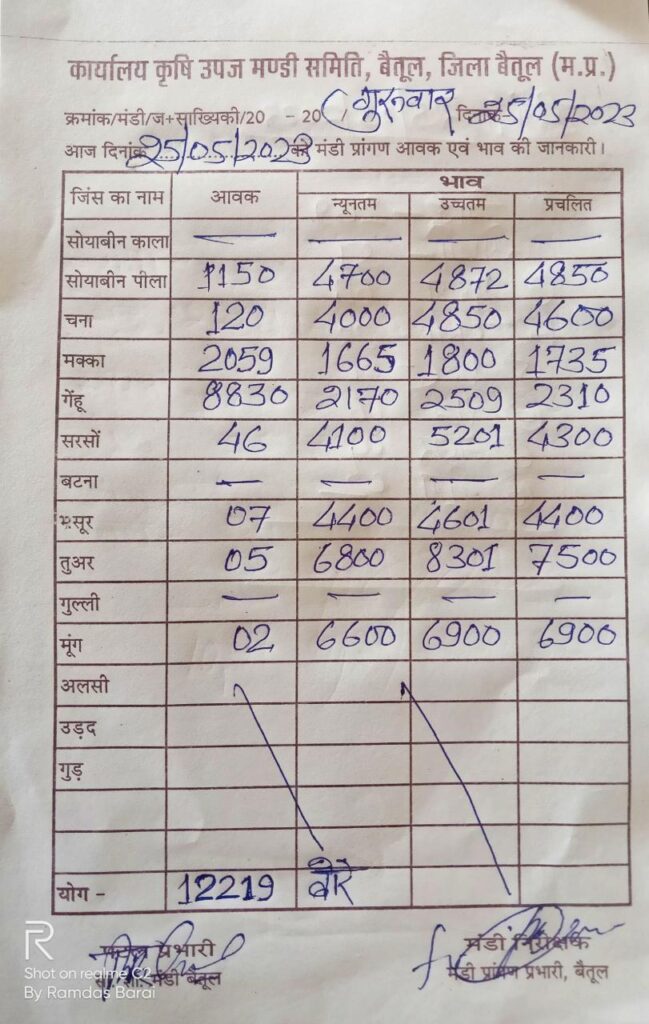 कार्यालय कृषि उपज मण्डी समिति, बैतूल, जिला बैतूल (म.प्र.)
क्रमांक/मंडी/ज+साख्यिकी/20 - 20 / (गुरुवार) दिनांक 25/05/2023
आज दिनांक 25/05/2023 को मंडी प्रांगण आवक एवं भाव की जानकारी।
जिंस का नाम आवक भाव
न्यूनतम उच्चतम प्रचलित
सोयाबीन काला — — — —
सोयाबीन पीला 1150 4700 4872 4850
चना 120 4000 4850 4600
मक्का 2059 1665 1800 1735
गेंहू 8830 2170 2509 2310
सरसों 46 4100 5201 4300
बटना — — — —
मसूर 07 4400 4601 4400
तुअर 05 6800 8301 7500
गुल्ली — — — —
मूंग 02 6600 6900 6900
अलसी
उड़द
गुड़
योग - 12219 बोरे
प्रभारी मंडी निरीक्षक
मंडी बैतूल मंडी प्रांगण प्रभारी, बैतूल
R
Shot on realme C2
By Ramdas Barai